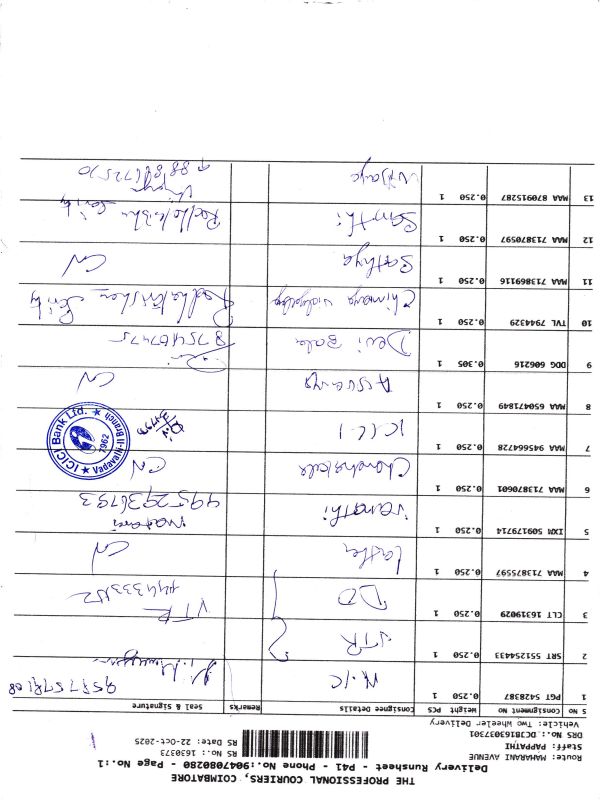 THE PROFESSIONAL COURIERS, COIMBATORE
Delivery Runsheet - P41 - Phone No.:9047080280 - Page No.:1
Route: MAHARANI AVENUE
Staff: PAPPATHI
DRS No.: DCJB163037301
Vehicle: Two Wheeler Delivery
RS No.: 1630373
RS Date: 22-Oct-2025
S No Consignment No Weight PCS Consignee Details Remarks Seal & Signature
1 PGT 5428387 0.250 1 M.IC
2 SRT 551254433 0.250 1 VTR
3 CLT 16319029 0.250 1 DO VTR
4 MAA 713875597 0.250 1 Latha CN
5 IXM 509179714 0.250 1 4952936793
6 MAA 713870601 0.250 1 CN
7 MAA 945664728 0.250 1
ICICI Bank Ltd. ★ Vadavalli-II Branch ★ 7962
8 MAA 650471849 0.250 1 CN
9 DDG 606216 0.305 1 Devi Bala 8754687475
10 TVL 7944329 0.250 1 Chinmaya
11 MAA 713869116 0.250 1 Sathya CN
12 MAA 713870597 0.250 1
13 MAA 870915287 0.250 1 Vijaya